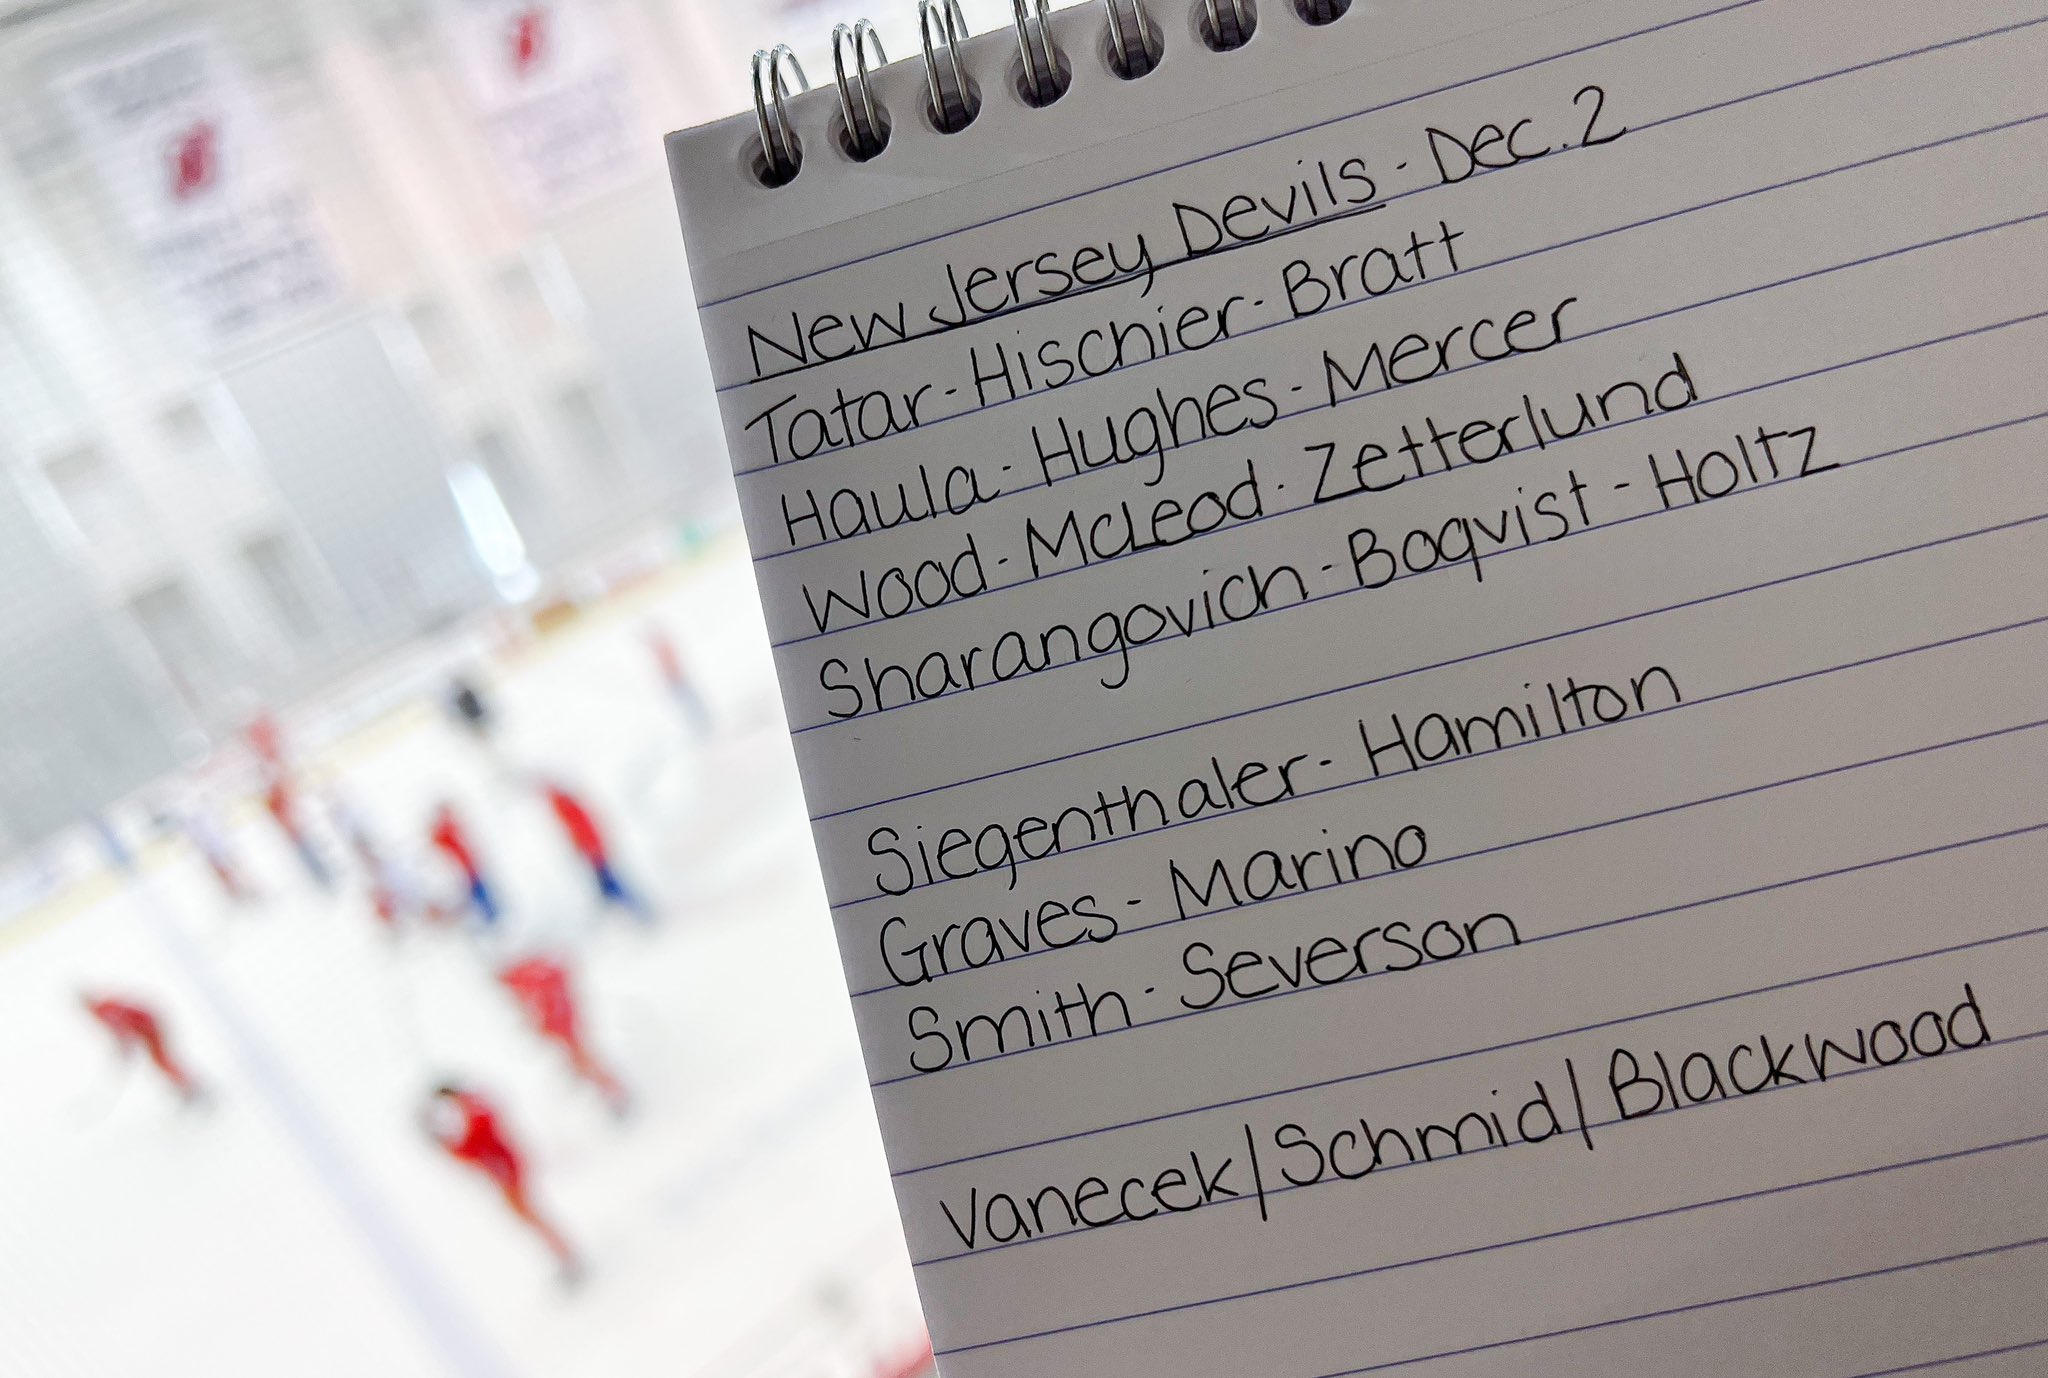 New Jersey Devils - Dec. 2
Tatar - Hischier - Bratt
Haula - Hughes - Mercer
Wood - McLeod - Zetterlund
Sharangovich - Boqvist - Holtz
Siegenthaler - Hamilton
Graves - Marino
Smith - Severson
Vanecek/Schmid/Blackwood